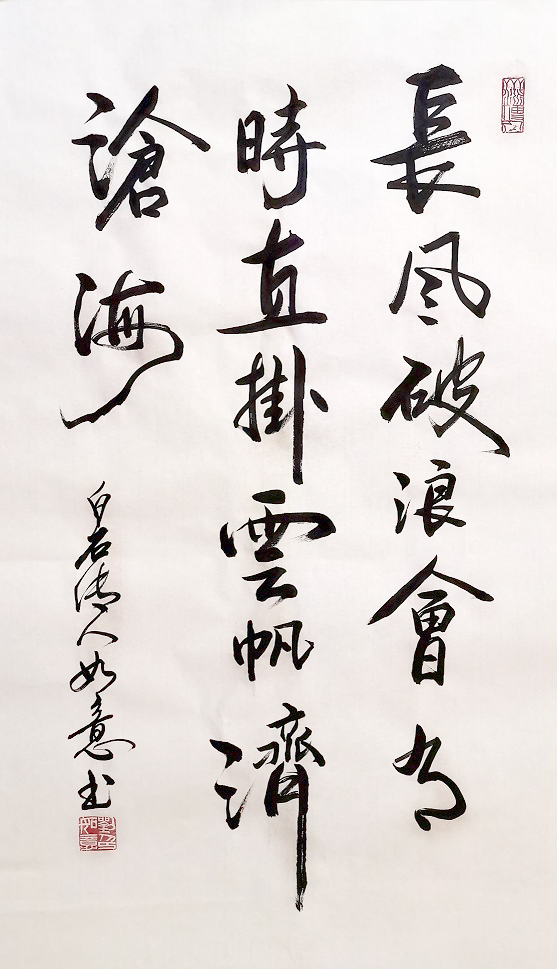 長風破浪會有
時直掛雲帆濟
滄海
白石清人如意书